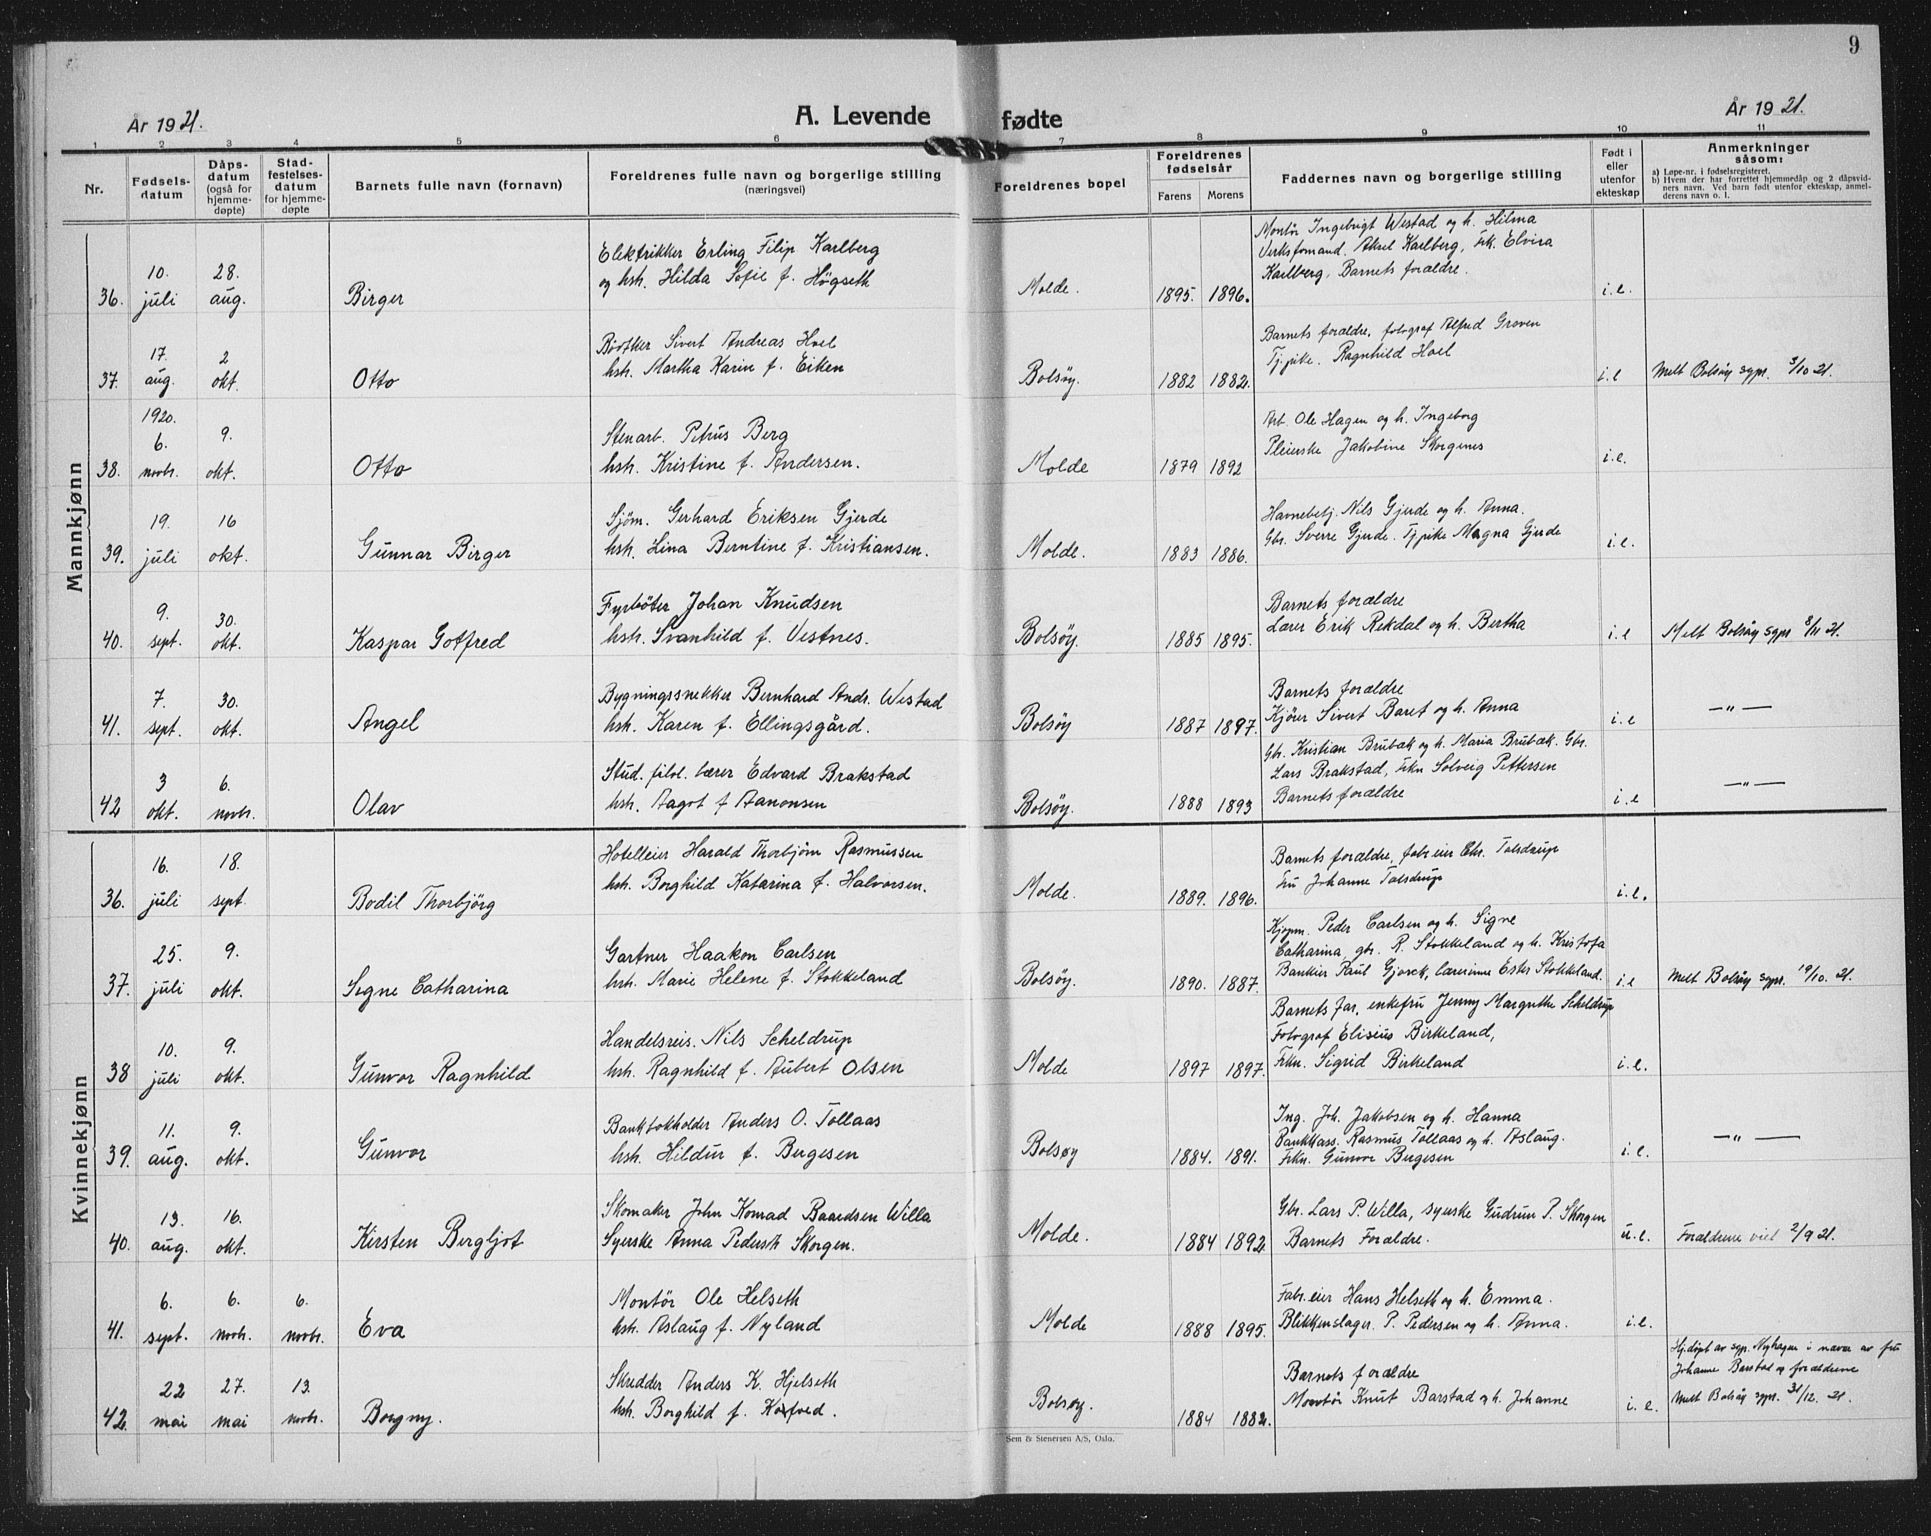 9
År 1921.
A. Levende fødte
År 1921.
1 2 3 4 5 6 7 8 9 10 11
Nr.
Fødsels-
datum
Dåps-
datum
(også for
hjemme-
døpte)
Stad-
festelses-
datum
for hjemme-
døpte
Barnets fulle navn (fornavn)
Foreldrenes fulle navn og borgerlige stilling
(næringsvei)
Foreldrenes bopel
Foreldrenes
fødselsår
Farens Morens
Faddernes navn og borgerlige stilling
Født i
eller
utenfor
ekteskap
Anmerkninger
såsom:
a) Løpe-nr. i fødselsregisteret.
b) Hvem der har forrettet hjemmedåp og 2 dåpsvid-
ners navn. Ved barn født utenfor ekteskap, anmel-
derens navn o. l.
Mannkjønn
36. 10. juli 28. aug. Birger
Elektrikker Erling Filip Karlberg
og hstr. Hilda Sofie f. Høgseth
Molde. 1895. 1896.
Montør Ingebrigt Westad og h. Hilma
Verksformand. Aksel Karlberg, frk. Elvira
Karlberg, Barnets forældre.
i.e.
37. 17. aug. 2 okt. Otto
Bødtker Sivert Andreas Hoel
hstr. Martha Karin f. Eiken
Bolsøy. 1882 1882.
Barnets forældre, fotograf Alfred Groven
Tj.pike. Ragnhild Hoel
i.e Melt Bolsøy sgpr. 3/10 21.
38. 1920. 6. novbr. 9. okt. Otto
Stenarb. Petrus Berg
hstr. Kristine f. Andersen.
Molde 1879 1892
Arb. Ole Hagen og h. Ingeborg
Pleierske Jakobine Skorgenes
i.e.
39. 19. juli 16 okt. Gunnar Birger
Sjøm. Gerhard Eriksen Gjerde
hstr. Lina Berntine f. Kristiansen.
Molde. 1883 1886.
Havnebetj. Nils Gjerde og h. Anna.
Gbr. Sverre Gjerde. Tj.pike Magna Gjerde
i.e.
40. 9. sept. 30. okt. Kaspar Gotfred
Fyrbøter Johan Knudsen
hstr. Svanhild f. Vestnes.
Bolsøy. 1885 1895.
Barnets forældre
Lærer Erik Rekdal og h. Bertha
i.e Melt Bolsøy sgpr 8/11 21.
41. 7. sept. 30. okt. Angel
Bygningssnekker Bernhard Andr. Westad
hstr. Karen f. Ellingsgård.
Bolsøy 1887 1897.
Barnets forældre
Kjører Sivert Baret og h. Anna
i.e — " —
42 3 okt. 6. novbr. Olav
Stud. filol. lærer Edvard Brakstad
hstr. Aagot f Aanonsen
Bolsøy. 1888 1893
Gbr. Kristian Brubæk og h. Maria Brubæk. Gbr.
Lars Brakstad, frkn Solveig Pettersen
Barnets forældre
i.e — " —
Kvinnekjønn
36. 16. juli 18. sept. Bodil Thorbjörg
Hotelleier Harald Thorbjørn Rasmussen
hstr. Borghild Katarina f. Halvorsen.
Molde. 1889. 1896.
Barnets forældre, fabr.eier Chr. Tolsdrup
Fru Johanne Tolsdrup
i.e.
37. 25. juli 9. okt. Signe Catharina
Gartner Haakon Carlsen
hstr. Marie Helene f. Stokkeland
Bolsøy. 1890. 1887.
Kjøpm. Peder Carlsen og h. Signe
Catharina, gbr. R. Stokkeland og h. Kristofa
Bankier Paul Gjorck, lærerinne Ester Stokkeland.
i.e Melt Bolsøy sgpr. 19/10. 21.
38 10. juli 9. okt. Gunvor Ragnhild
Handelsreis. Nils Scheldrup
hstr. Ragnhild f. Aubert Olsen
Molde 1897 1897.
Barnets far, enkefru Jenny Margrethe Scheldrup
Fotograf Elisius Birkeland,
Frkn. Sigrid Birkeland
i.e.
39. 11. aug. 9. okt. Gunvor
Bankbokholder Anders O. Tollaas
hstr. Hildur f. Bergesen
Bolsøy 1884. 1891.
Ing. Joh. Jakobsen og h. Hanna
Bankkass. Rasmus Tollaas og h. Aslaug.
Frkn. Gunvor Bergesen
i.e. — " —
40. 13. aug. 16. okt. Kirsten Bergljot
Skomaker John Konrad Baardsen Willa
Syerske Anna Pedersdt. Skorgen.
Molde. 1884 1892
Gbr. Lars P. Willa, syerske Gudrun P. Skorgen
Barnets Forældre.
u.e. Forældrene viet 2/9 21.
41. 6. sept. 6. novbr. 6. novbr. Eva
Montør Ole Helseth
hstr. Aslaug f. Nyland
Molde 1888 1895.
Fabr.eier Hans Helseth og h. Emma.
Blikkenslager. P. Pedersen og h. Anna.
i.e.
42. 22 mai 27. mai 13. novbr. Borgny.
Skredder Anders K. Hjelseth
hstr. Borghild f. Korfved.
Bolsøy. 1884 1882.
Barnets forældre
Montør Knut Barstad og h. Johanne
i.e.
Hj.døpt av sgpr. Nyhagen i nærv. av fru
Johanne Barstad og forældrene
Melt Bolsøy sgpr. 31/12. 21.
Sem & Stenersen A/S, Oslo.